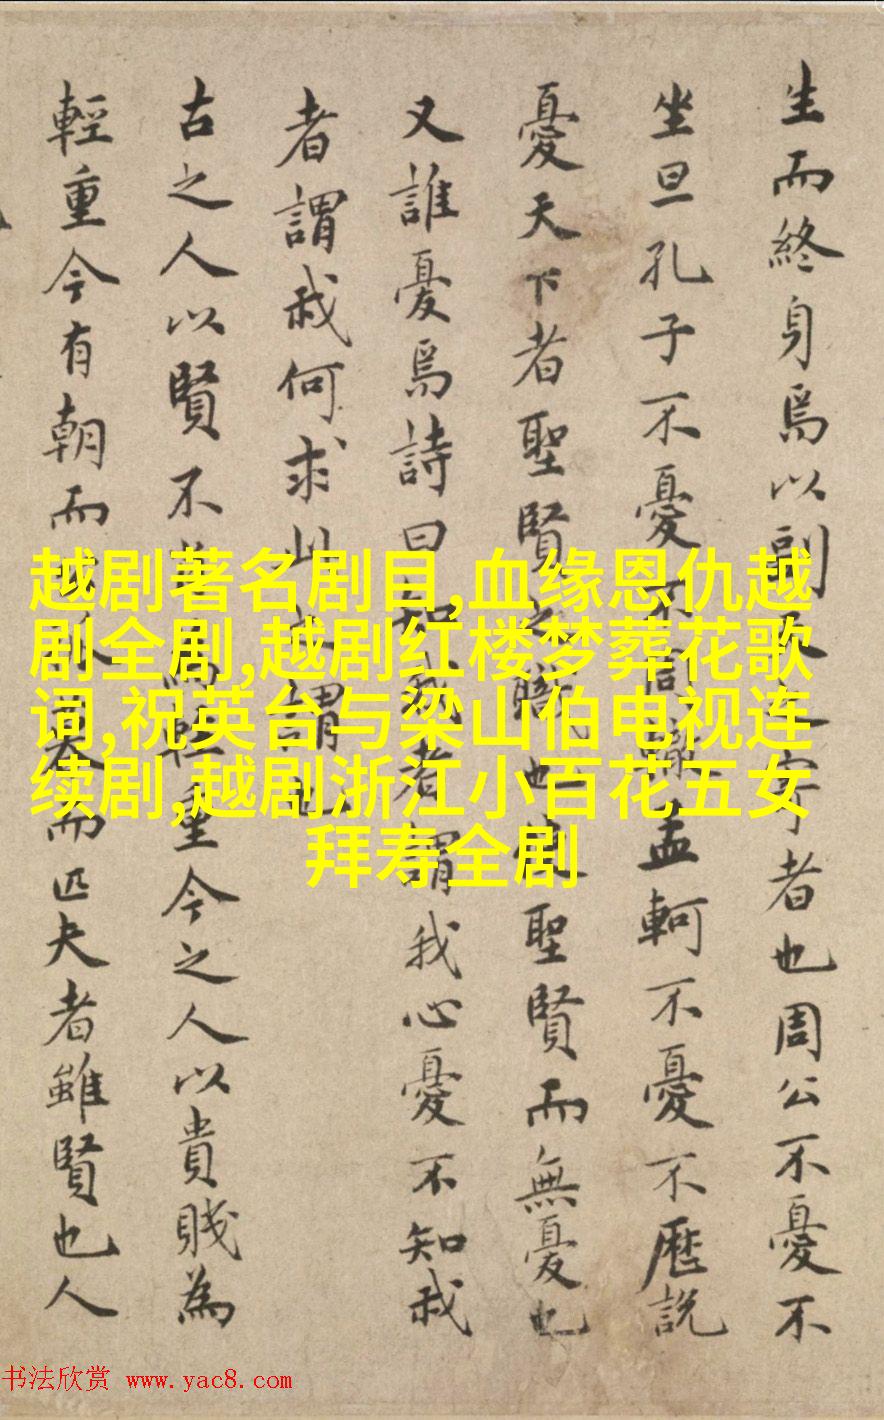 生而終身焉以副者也周公不憂不
坐旦孔子不憂不轍孟軻不憂不歷說
憂天下者聖賢之職也聖賢而無憂也
又誰憂焉詩曰知我者謂我心憂不知我
者謂我何求此之謂也
古之人以賢不為輕重今之人以貴賤為
輕重今有朝而人暮而匹夫者雖賢也人
越剧著名剧目,血缘恩仇越
剧全剧,越剧红楼梦葬花歌
词,祝英台与梁山伯电视连
续剧,越剧浙江小百花五女
拜寿全剧
书法欣赏 www.yac8.com